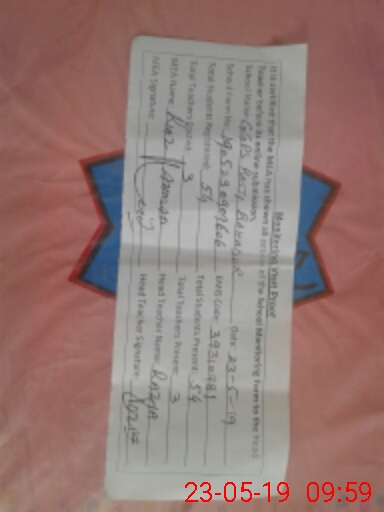 Monitoring Visit Proof
It is certified that the MEA has shown all entries of the School Monitoring Form to the Head
Teacher before its online submission.
School Name: GGPS Basti Date: 23-5-19
School Form No: EMIS Code: 39310981
Total Students Registered: 54 Total Students Present: 54
Total Teachers Posted: 3 Total Teachers Present: 3
MEA Name: Riaz Head Teacher Name: RAZIA
MEA Signature: Head Teacher Signature: Razia
23-05-19 09:59